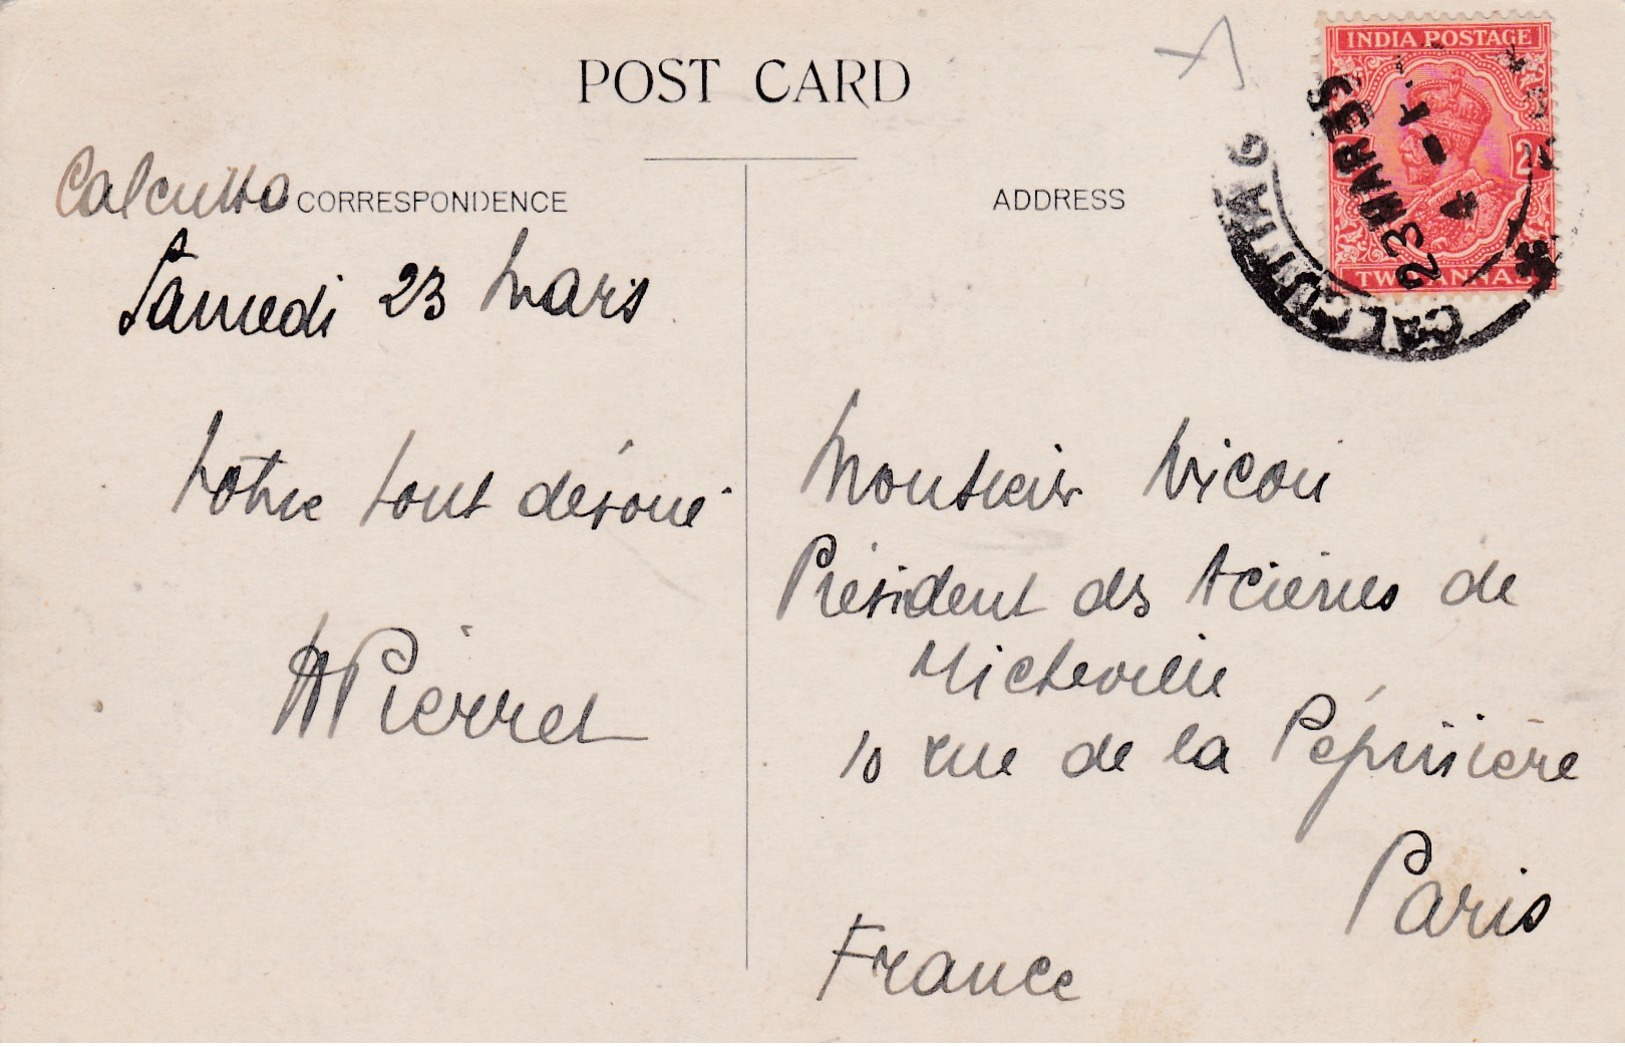 POST CARD
CORRESPONDENCE
ADDRESS
Calcutta
Samedi 23 Mars
Votre tout dévoué
APierret
Monsieur Nicou
Président des Aciéries de
Micheville
10 rue de la Pépinière
Paris
France
INDIA POSTAGE
TWO ANNAS
CALCUTTA G
23 MAR 35